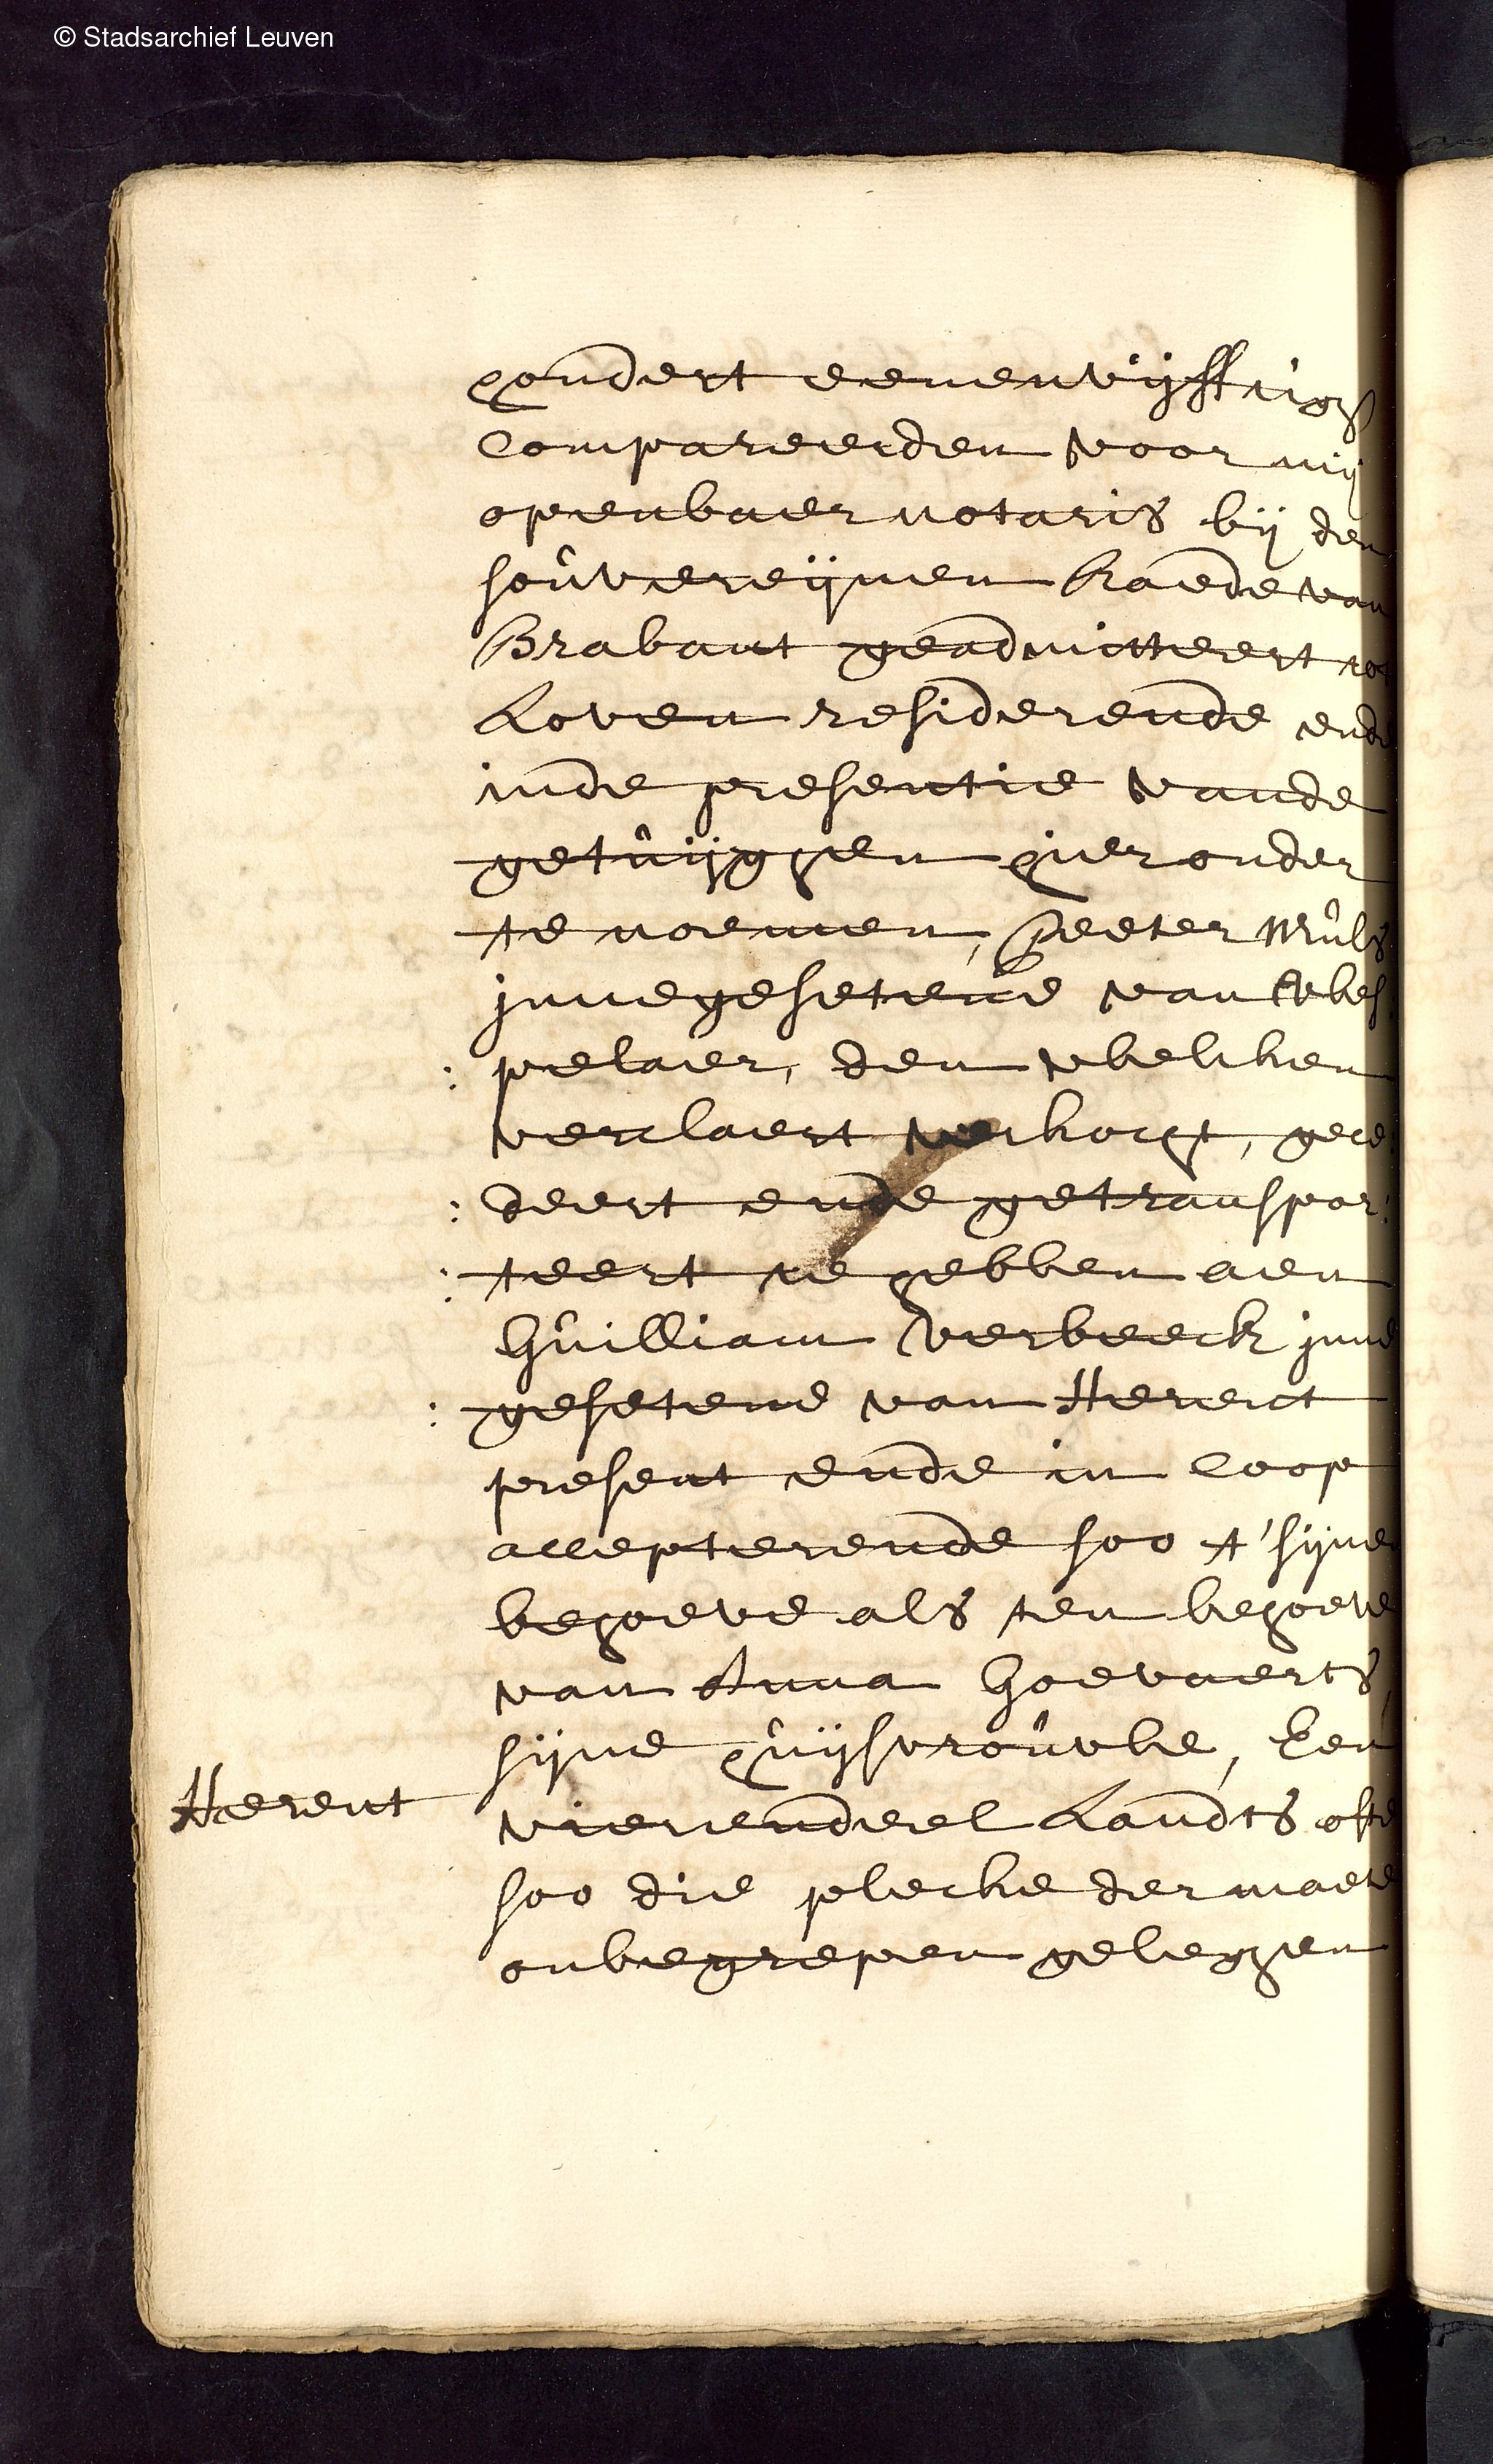 © Stadsarchief Leuven
hondert eenenvijfftigh
Compareerden voor mij
openbaer notaris bij den
souvereijnen Raede van
Brabant geadmitteert tot
Loven residerende ende
inde presentie vande
getuijghen hier onder
te noemen, Peeter Muls
innegesetene van Wes
: pelaer, den welcken
verclaert verkocht, gece
: deert ende getranspor:
: teert te hebben aen
Guilliam Verbeeck inne
: gesetene van Herent
present ende in coop
accepterende soo t'sijnen
behoeve als ten behoeve
van Anna Goevaerts,
sijne huijsvrouwe, Een
Herent
vierendeel Landts ofte
soo die plecke der maete
onbegrepen geleghen